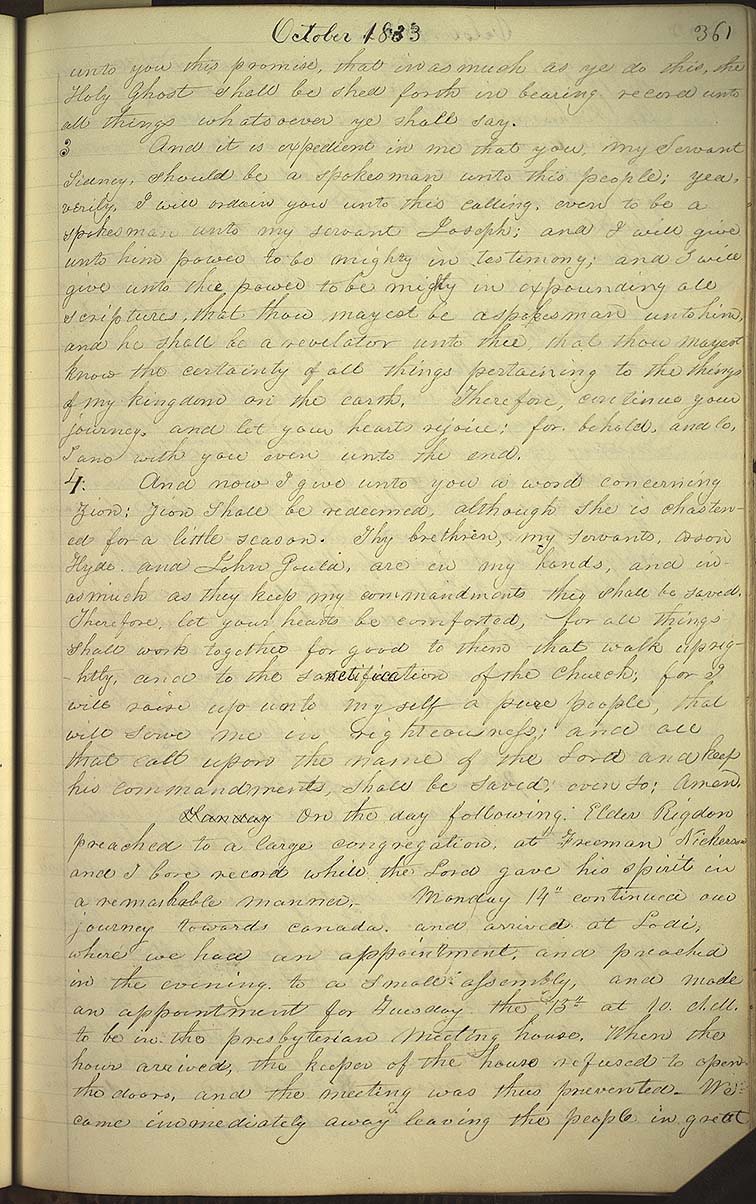 October 1833 361
unto you this promise, that inasmuch as ye do this, the
Holy Ghost shall be shed forth in bearing record unto
all things whatsoever ye shall say.
3 And it is expedient in me that you, my Servant
Sidney, should be a spokesman unto this people; yea,
verily, I will ordain you unto this calling, even to be a
spokesman unto my servant Joseph; and I will give
unto him power to be mighty in testimony; and I will
give unto thee power to be mighty in expounding all
scriptures, that thou mayest be a spokesman unto him,
and he shall be a revelator unto thee, that thou mayest
know the certainty of all things pertaining to the things
of my kingdom on the earth. Therefore, continue your
journey, and let your hearts rejoice; for behold, and lo,
I am with you even unto the end.
4. And now I give unto you a word concerning
Zion: Zion shall be redeemed, although she is chasten-
ed for a little season. Thy brethren, my servants, orson
Hyde and John Gould, are in my hands, and in-
asmuch as they keep my commandments they shall be saved.
Therefore, let your hearts be comforted, for all things
shall work together for good to them that walk uprig-
-htly, and to the sanctification of the church; for I
will raise up unto myself a pure people, that
will serve me in righteousness; and all
that call upon the name of the Lord and keep
his commandments, shall be saved; even so; Amen.
Sunday On the day following: Elder Rigdon
preached to a large congregation, at Freeman Nickerson
and I bore record while the Lord gave his spirit in
a remarkable manner. Monday 14" continued our
journey towards canada, and arrived at Lodi,
where we had an appointment, and preached
in the evening to a small assembly, and made
an appointment for Tuesday the 15th at 10. A.M.
to be in the presbyterian meeting house. When the
hour arrived, the keeper of the house refused to open
the doors, and the meeting was thus prevented. We
came immediately away leaving the people in great